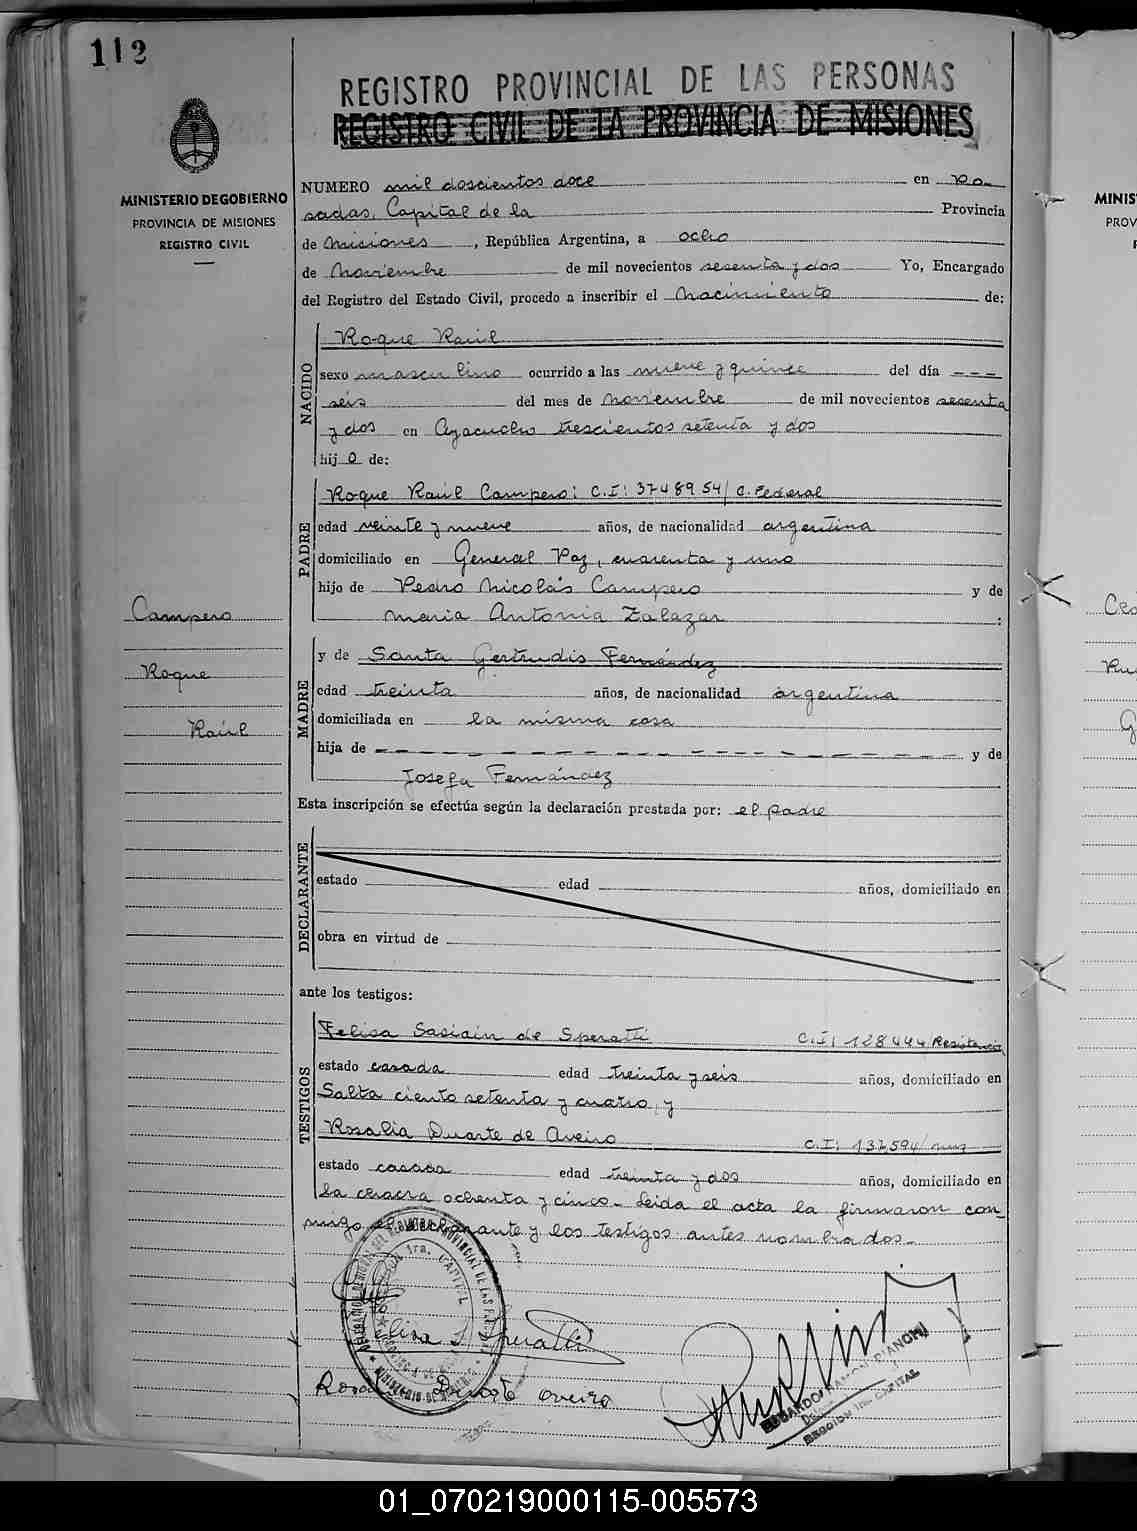 112
REGISTRO PROVINCIAL DE LAS PERSONAS
REGISTRO CIVIL DE LA PROVINCIA DE MISIONES
MINISTERIO DE GOBIERNO
PROVINCIA DE MISIONES
REGISTRO CIVIL
NUMERO mil doscientos doce en Po-
sadas, Capital de la Provincia
de Misiones, República Argentina, a ocho
de Noviembre de mil novecientos sesenta y dos Yo, Encargado
del Registro del Estado Civil, procedo a inscribir el Nacimiento de:
NACIDO
Roque Raúl
sexo masculino ocurrido a las nueve y quince del día ---
seis del mes de Noviembre de mil novecientos sesenta
y dos en Ayacucho trescientos setenta y dos
hij o de:
PADRE
Roque Raúl Campero: C.I: 3748954/ C. Federal
edad veinte y nueve años, de nacionalidad argentina
domiciliado en General Paz, cuarenta y uno
hijo de Pedro Nicolás Campero y de
Maria Antonia Zalazar :
Campero
Roque
Raúl
MADRE
y de Santa Gertrudis Fernández
edad treinta años, de nacionalidad argentina
domiciliada en la misma casa
hija de - - - - - - - - - - - - - y de
Josefa Fernández
Esta inscripción se efectúa según la declaración prestada por: el padre
DECLARANTE
estado edad años, domiciliado en
obra en virtud de
ante los testigos:
TESTIGOS
Felisa Sasiain de Speratti C.I: 128444/Resistencia
estado casada edad treinta y seis años, domiciliado en
Salta ciento setenta y cuatro, y
Rosalia Duarte de Aveiro C.I: 137594/
estado casada edad treinta y dos años, domiciliado en
la chacra ochenta y cinco.- Leida el acta la firmaron con-
migo el declarante y los testigos antes nombrados.-
Speratti
Duarte Aveiro
EDUARDO RAMON BIANCHI
CAPITAL
MINIS
PROV
R
01_070219000115-005573